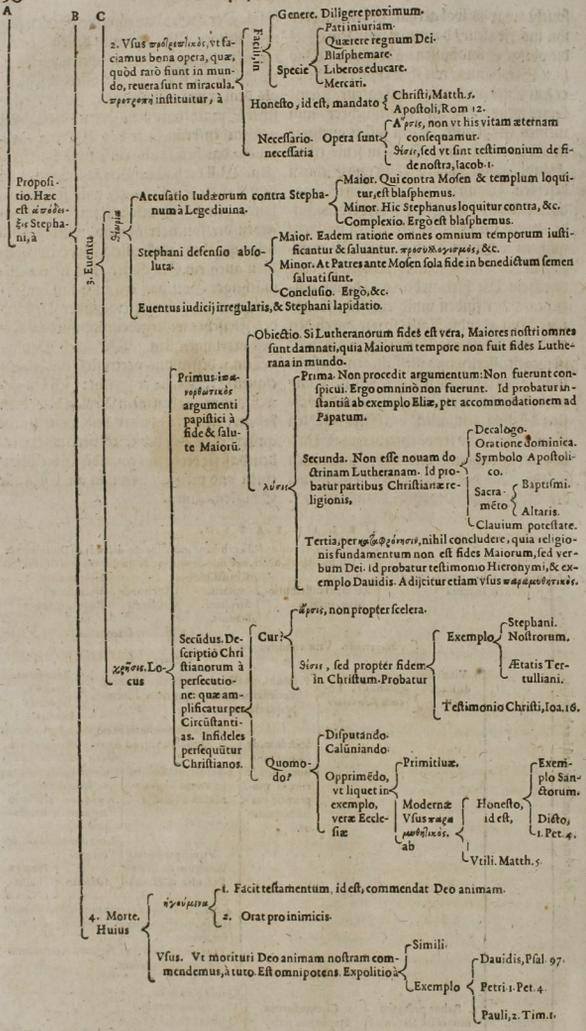 A
B C
Propositio.
Propositio. Hæc
est ἀπόδει-
ξις Stepha-
ni, à
2. Vsus προτρεπτικὸς, vt fa-
ciamus bona opera, quæ,
quòd rarò fiunt in mun-
do, revera sunt miracula.
προτροπὴ instituitur, à
Facili, in
Genere. Diligere proximum.
Specie
Pati iniuriam.
Quærere regnum Dei.
Blasphemare.
Liberos educare.
Mercari.
Honesto, id est, mandato
Christi, Matth. 5.
Apostoli, Rom 12.
Necessario.
necessaria
Opera sunt
Ἄρσις, non vt his vitam æternam
consequamur.
θέσις, sed vt sint testimonium de fi-
de nostra, Iacob. 1.
3. Euentu
θεωρία
Accusatio Iudæorum contra Stepha-
num à Lege diuina.
Maior. Qui contra Mosen & templum loqui-
tur, est blasphemus.
Minor. Hic Stephanus loquitur contra, &c.
Complexio. Ergò est blasphemus.
Stephani defensio abso-
luta.
Maior. Eadem ratione omnes omnium temporum iusti-
ficantur & saluantur. προσυλλογισμὸς, &c.
Minor. At Patres ante Mosen sola fide in benedictum semen
saluati sunt.
Conclusio. Ergò, &c.
Euentus iudicij irregularis, & Stephani lapidatio.
χρῆσις. Lo-
cus
Primus ἐπα-
νορθωτικὸς
argumenti
papistici à
fide & salu-
te Maiorũ.
Obiectio. Si Lutheranorum fides est vera, Maiores nostri omnes
sunt damnati, quia Maiorum tempore non fuit fides Luthe-
rana in mundo.
λύσις
Prima. Non procedit argumentum: Non fuerunt con-
spicui. Ergo omninò non fuerunt. Id probatur in-
stantiâ ab exemplo Eliæ, per accommodationem ad
Papatum.
Secunda. Non esse nouam do
ctrinam Lutheranam. Id pro-
batur partibus Christianæ re-
ligionis,
Decalogo.
Oratione dominica.
Symbolo Apostoli-
co.
Sacra-
mẽto
Baptismi.
Altaris.
Clauium potestate.
Tertia, per καταφρόνησιν, nihil concludere, quia religio-
nis fundamentum non est fides Maiorum, sed ver-
bum Dei. Id probatur testimonio Hieronymi, & ex-
emplo Dauidis. Adijcitur etiam vsus παραμυθητικὸς.
Secũdus. De-
scriptio Chri
stianorum à
persecutio-
ne: quæ am-
plificatur per
Circũstanti-
as. Infideles
persequũtur
Christianos.
Cur?
ἄρσις, non propter scelera.
θέσις, sed propter fidem
in Christum. Probatur
Exemplo
Stephani.
Nostrorum.
Ætatis Ter-
tulliani.
Testimonio Christi, Ioa. 16.
Quomo-
do?
Disputando.
Calũniando.
Opprimẽdo,
vt liquet in
exemplo,
veræ Eccle-
siæ
Primitiuæ.
Modernæ
Vsus παρα
μυθητικὸς.
ab
Honesto,
id est,
Exem-
plo San-
ctorum.
Dicto,
1. Pet. 4.
Vtili. Matth. 5.
4. Morte.
Huius
ἡγούμενα
1. Facit testamentum, id est, commendat Deo animam.
2. Orat pro inimicis.
Vsus. Vt morituri Deo animam nostram com-
mendemus, à tuto. Est omnipotens. Expolitio à
Simili.
Exemplo
Dauidis, Psal. 97.
Petri 1. Pet. 4.
Pauli, 2. Tim. 1.